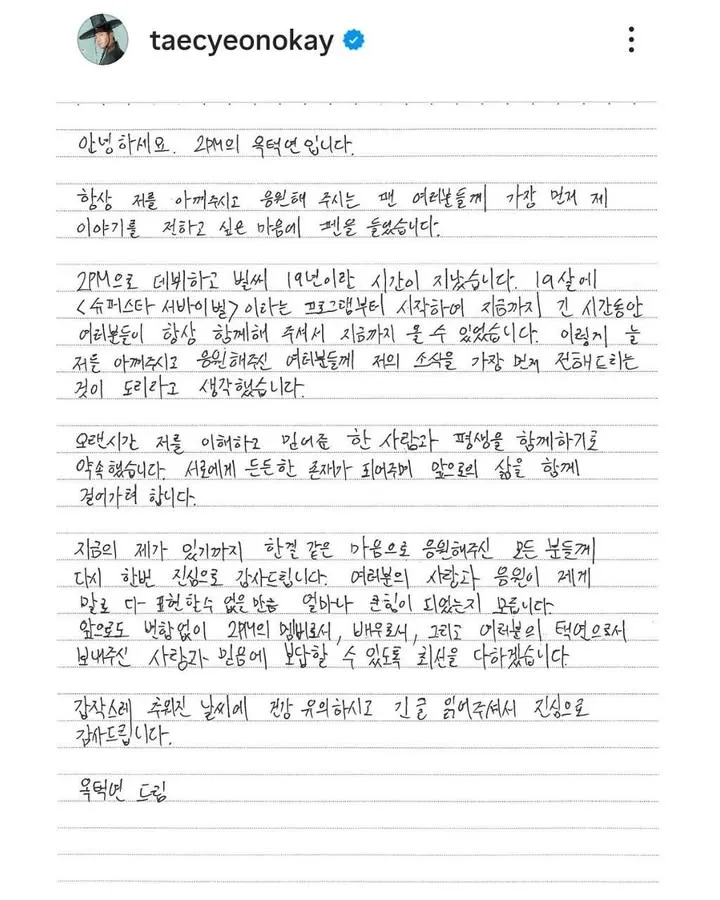 taecyeonokay
안녕하세요. 2PM의 옥택연입니다.
항상 저를 아껴주시고 응원해 주시는 팬 여러분들께 가장 먼저 제
이야기를 전하고 싶은 마음에 펜을 들었습니다.
2PM으로 데뷔하고 벌써 19년이란 시간이 지났습니다. 19살에
<슈퍼스타 서바이벌>이라는 프로그램부터 시작하여 지금까지 긴 시간동안
여러분들이 항상 함께해 주셔서 지금까지 올 수 있었습니다. 이렇게 늘
저를 아껴주시고 응원해주신 여러분들께 저의 소식을 가장 먼저 전해드리는
것이 도리라고 생각했습니다.
오랜시간 저를 이해하고 믿어준 한 사람과 평생을 함께하기로
약속했습니다. 서로에게 든든한 존재가 되어주며 앞으로의 삶을 함께
걸어가려 합니다.
지금의 제가 있기까지 한결 같은 마음으로 응원해주신 모든 분들께
다시 한번 진심으로 감사드립니다. 여러분의 사랑과 응원이 제게
말로 다 표현할수 없을 만큼 얼마나 큰힘이 되었는지 모릅니다.
앞으로도 변함없이 2PM의 멤버로서, 배우로서, 그리고 여러분의 택연으로서
보내주신 사랑과 믿음에 보답할 수 있도록 최선을 다하겠습니다.
갑작스레 추워진 날씨에 건강 유의하시고 긴 글 읽어주셔서 진심으로
감사드립니다.
옥택연 드림